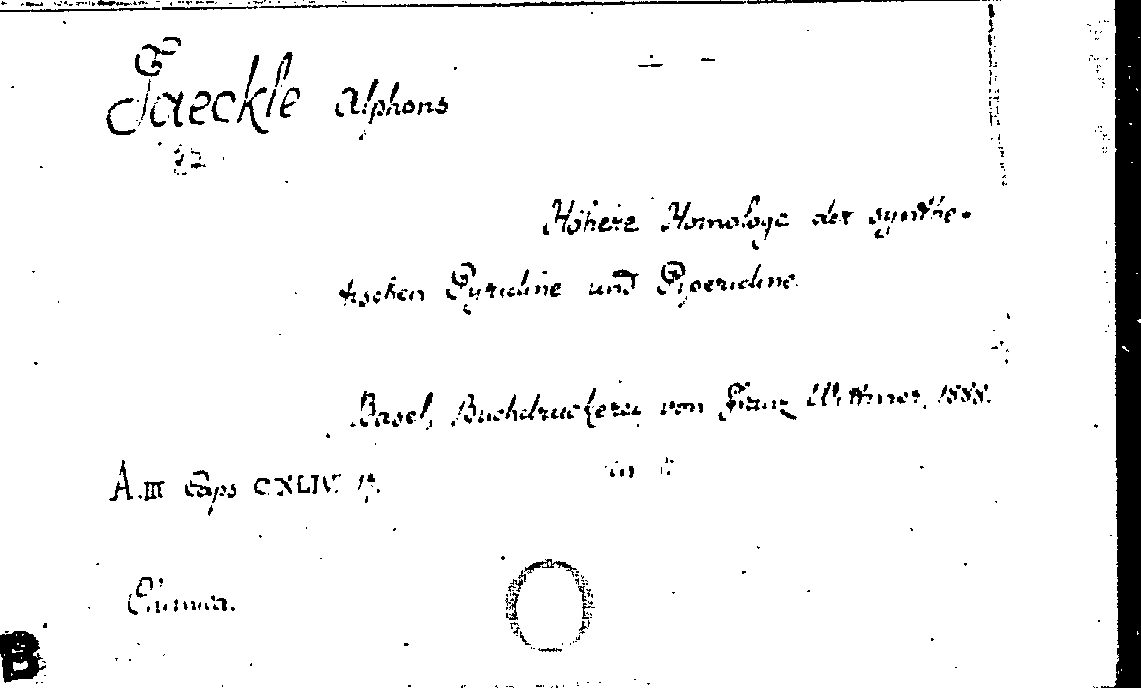 Jaeckle Alphons
Höhere Homologe der synthe-
tischen Pyridine und Piperidine.
Basel, Buchdruckerei von Franz Wittmer, 1888.
in 8
A.III Caps CXLIV.
Chimica.
B